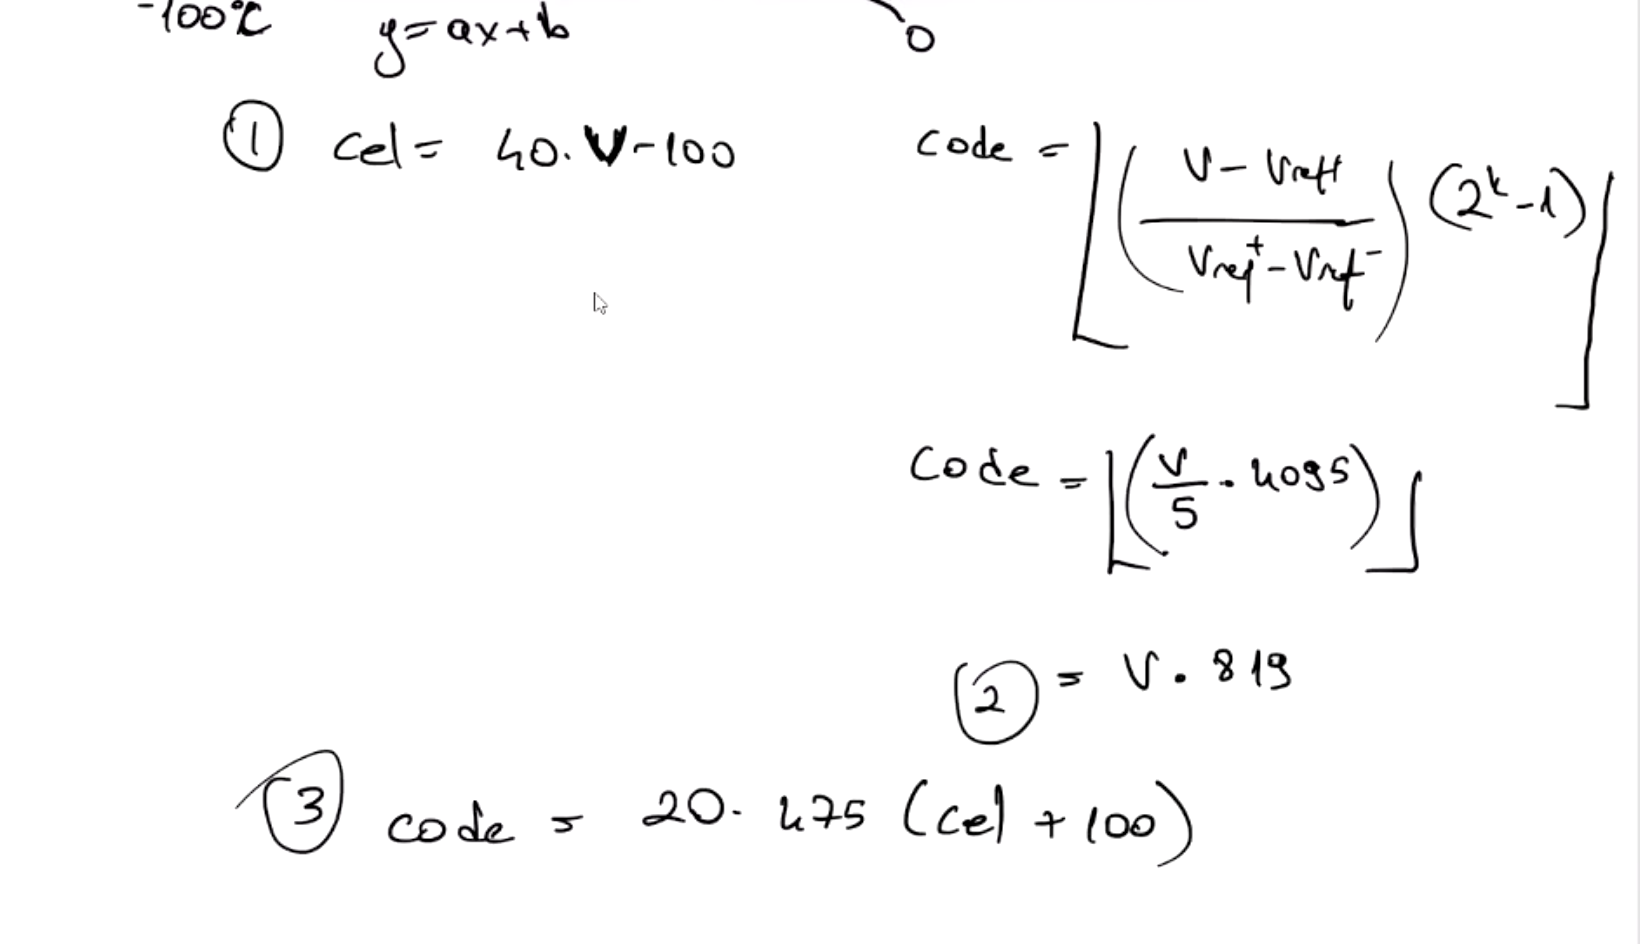 -100°C
y = ax + b
0
① Cel = 40. V - 100
Code = ⌊( (V - Vref+) / (Vref+ - Vref-) ) (2^k - 1)⌋
Code = ⌊( V/5 . 4095 )⌋
② = V . 819
③ code = 20. 475 (Cel + 100)